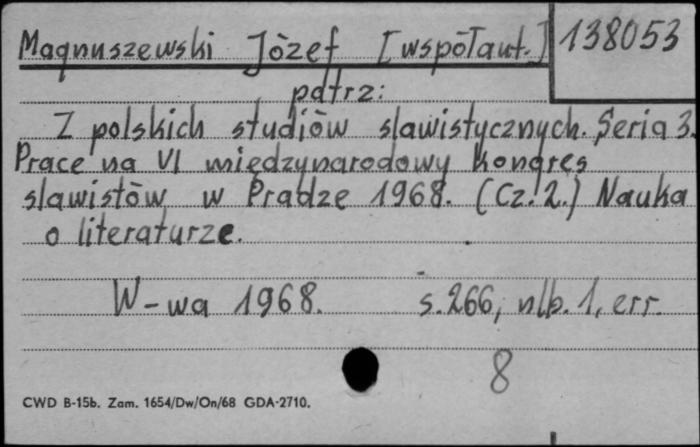 Magnuszewski Józef [współaut.] 138053
patrz:
Z polskich studiów slawistycznych. Seria 3.
Prace na VI międzynarodowy Kongres
slawistów w Pradze 1968. (Cz. 2.) Nauka
o literaturze.
W-wa 1968. s. 266, nlb. 1, err.
8
CWD B-15b. Zam. 1654/Dw/On/68 GDA-2710.